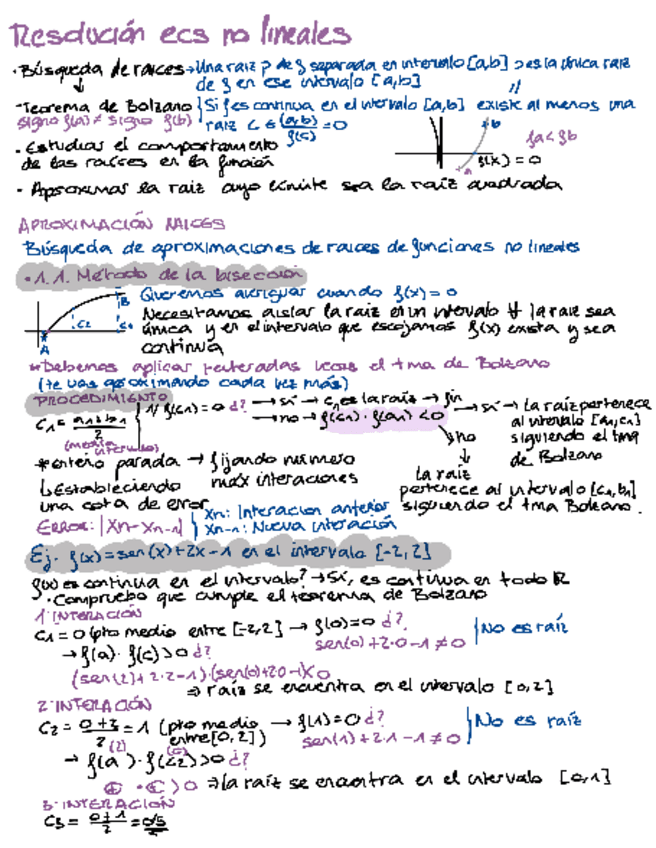 Resolución ecs no lineales
· Búsqueda de raíces → Una raíz p de f separada en intervalo [a,b] ⊃ es la única raíz
de f en ese intervalo [a,b]
- Teorema de Bolzano | Si f es continua en el intervalo [a,b] existe al menos una
signo f(a) ≠ signo f(b) raíz c ∈ (a,b) f(c) = 0
fa<fb
b
a
f(x) = 0
· Estudias el comportamiento
de las raíces en la función
· Aproximas la raíz cuyo límite sea la raíz cuadrada
APROXIMACIÓN RAICES
Búsqueda de aproximaciones de raíces de funciones no lineales
· 1.1. Método de la bisección
B
A
C2
Queremos averiguar cuando f(x) = 0
Necesitamos aislar la raíz en un intervalo # la raíz sea
única y en el intervalo que escojamos f(x) exista y sea
continua
* Debemos aplicar reiteradas veces el tma de Bolzano
(te vas aproximando cada vez más)
PROCEDIMIENTO
C1 = a1+b1/2 (media intervalo) | 1/ f(c1) = 0 ¿? → sí → c1 es la raíz → fin
→ no → f(c1) · f(a1) < 0 → sí → La raíz pertenece
al intervalo [a1,c1]
siguiendo el tma
de Bolzano
↘ no
↓
La raíz
pertenece al intervalo [c1,b1]
siguiendo el tma Bolzano.
* criterio parada → fijando número
max interaciones
↳ Estableciendo
una cota de error
ERROR: |Xn-Xn-1| | Xn: Interacion anterior
Xn-1: Nueva interación
Ej. f(x) = sen(x)+2x-1 en el intervalo [-2,2]
f(x) es continua en el intervalo? → Sí, es continua en todo ℝ
· Compruebo que cumple el teorema de Bolzano
1ª INTERACIÓN
C1 = 0 (pto medio entre [-2,2] → f(0)=0 ¿? | No es raíz
sen(0)+2·0-1 ≠ 0
→ f(a) · f(c) > 0 ¿?
(sen(2)+2·2-1)·(sen(0)+20-1)<0
⇒ raíz se encuentra en el intervalo [0,2]
2ª INTERACIÓN
C2 = 0+2/2 = 1 (pto medio entre [0,2]) → f(1) = 0 ¿? | No es raíz
sen(1)+2·1-1 ≠ 0
(2) (c)
→ f(a) · f(c2) > 0 ¿?
⊕ · ⊕ > 0 ⇒ la raíz se encuentra en el intervalo [0,1]
3ª INTERACIÓN
C3 = 0+1/2 = 0'5